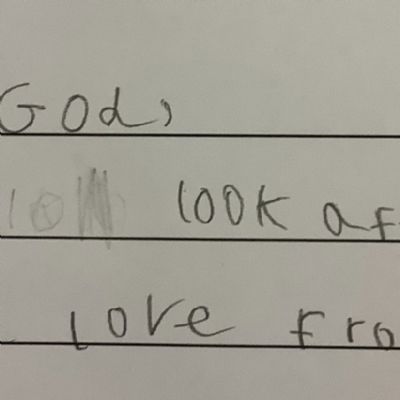 God,
look af
love fro